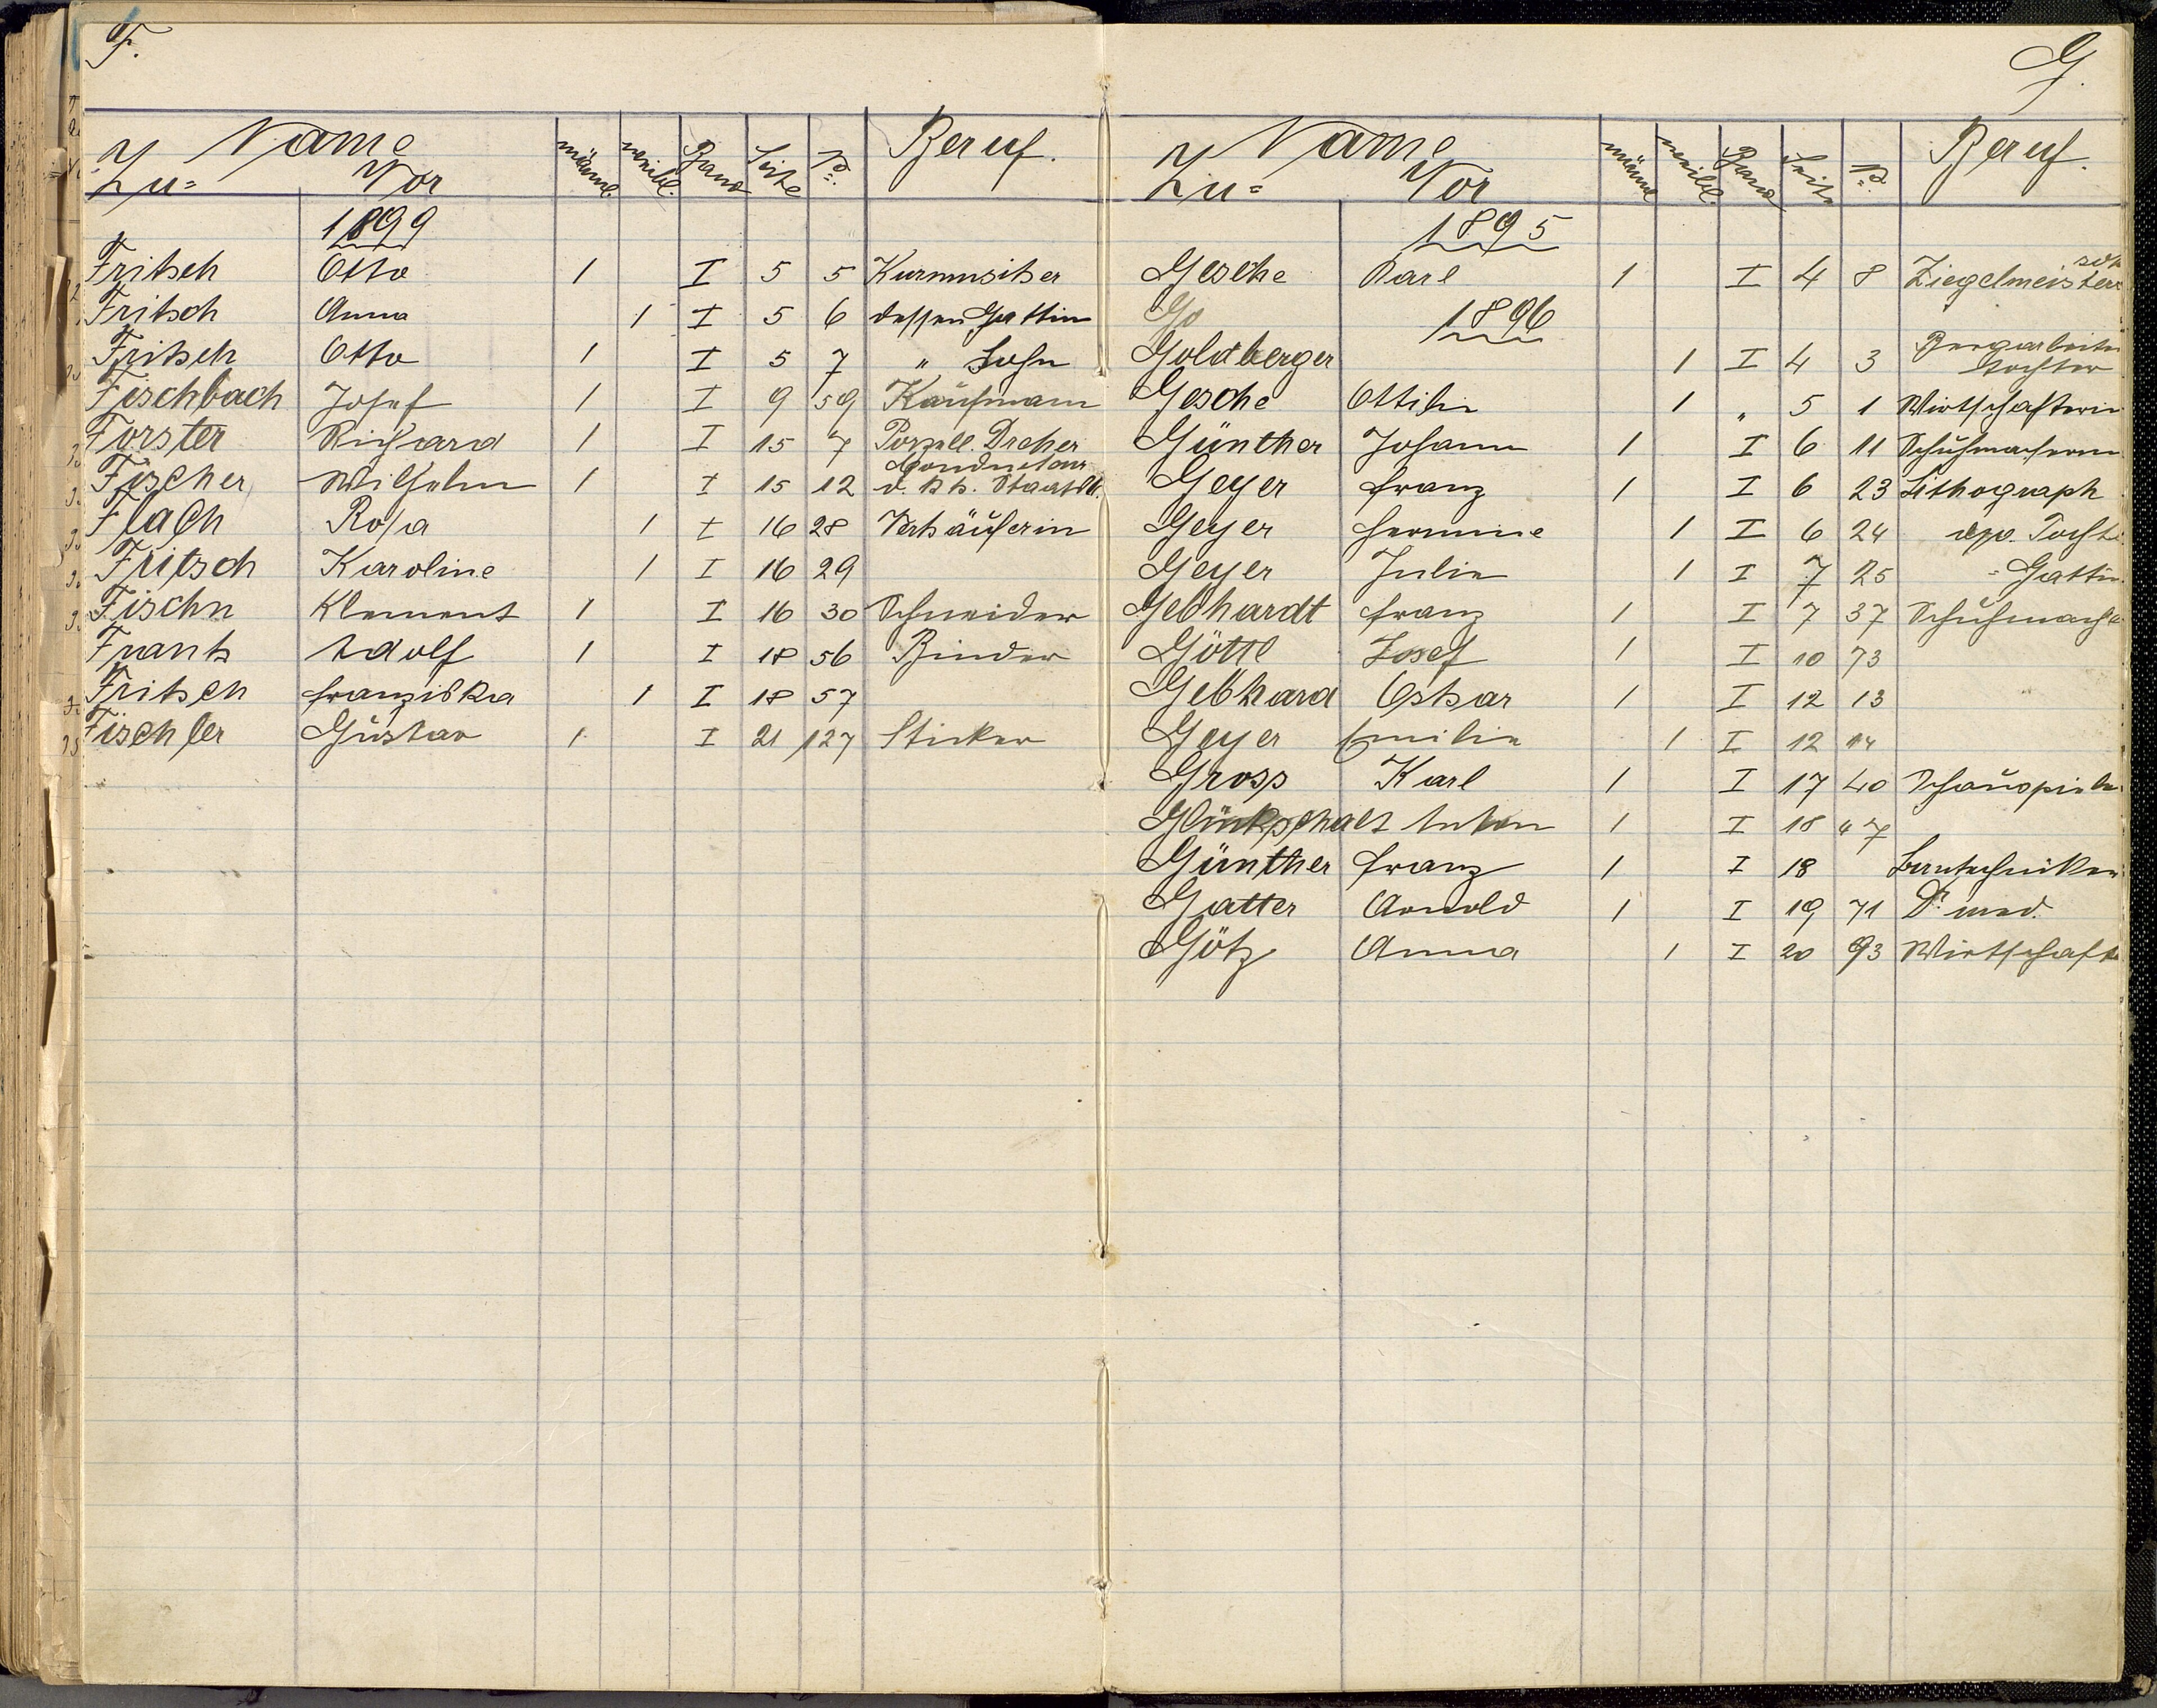 F.
Name
Zu= Vor männl. weibl. Band Seite No. Beruf.
1899
Fritsch Otto 1 I 5 5 Kurmusiker
Fritsch Anna 1 I 5 6 dessen Gattin
Fritsch Otto 1 I 5 7 " Sohn
Fischbach Josef 1 I 9 59 Kaufmann
Forster Richard 1 I 15 7 Porzell. Dreher
Fischer Wilhelm 1 I 15 12 Conducteur
d. k. k. Staatsb.
Flach Rosa 1 I 16 28 Verkäuferin
Fritsch Karoline 1 I 16 29
Fischn Klement 1 I 16 30 Schneider
Frank Adolf 1 I 18 56 Binder
Fritsch Franziska 1 I 18 57
Fischler Gustav 1 I 21 127 Sticker
G.
Name
Zu= Vor männl. weibl. Band Seite No. Beruf.
1895
Gesche Karl 1 I 4 8 Ziegelmeisters
Go 1896
Goldberger 1 I 4 3 Bergarbeiter
Tochter
Gesche Ottilie 1 " 5 1 Wirtschafterin
Günther Johann 1 I 6 11
Geyer Franz 1 I 6 23 Lithograph
Geyer Hermine 1 I 6 24
Geyer Julie 1 I 7 25 " Gattin
Gebhardt Franz 1 I 7 37 Schuhmacher
Göttl Josef 1 I 10 73
Gebhard Oskar 1 I 12 13
Geyer Emilie 1 I 12 14
Gross Karl 1 I 17 40 Schauspieler
Anton 1 I 18 47
Günther Franz 1 I 18 Bautechniker
Gatter Arnold 1 I 19 71 Dr. med.
Götz Anna 1 I 20 93 Wirtschaft